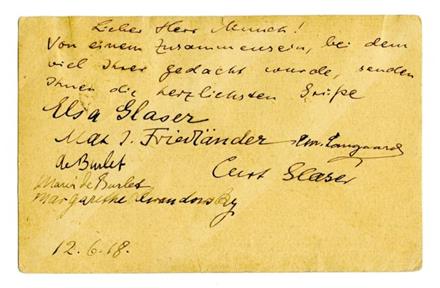 Lieber Herr Munch!
Von einem Zusammensein, bei dem
viel Ihrer gedacht wurde, senden
Ihnen die herzlichsten Grüße
Elsa Glaser
Max J. Friedländer
de Burlet
Curt Glaser
Marie de Burlet
Margarethe
12.6.18.